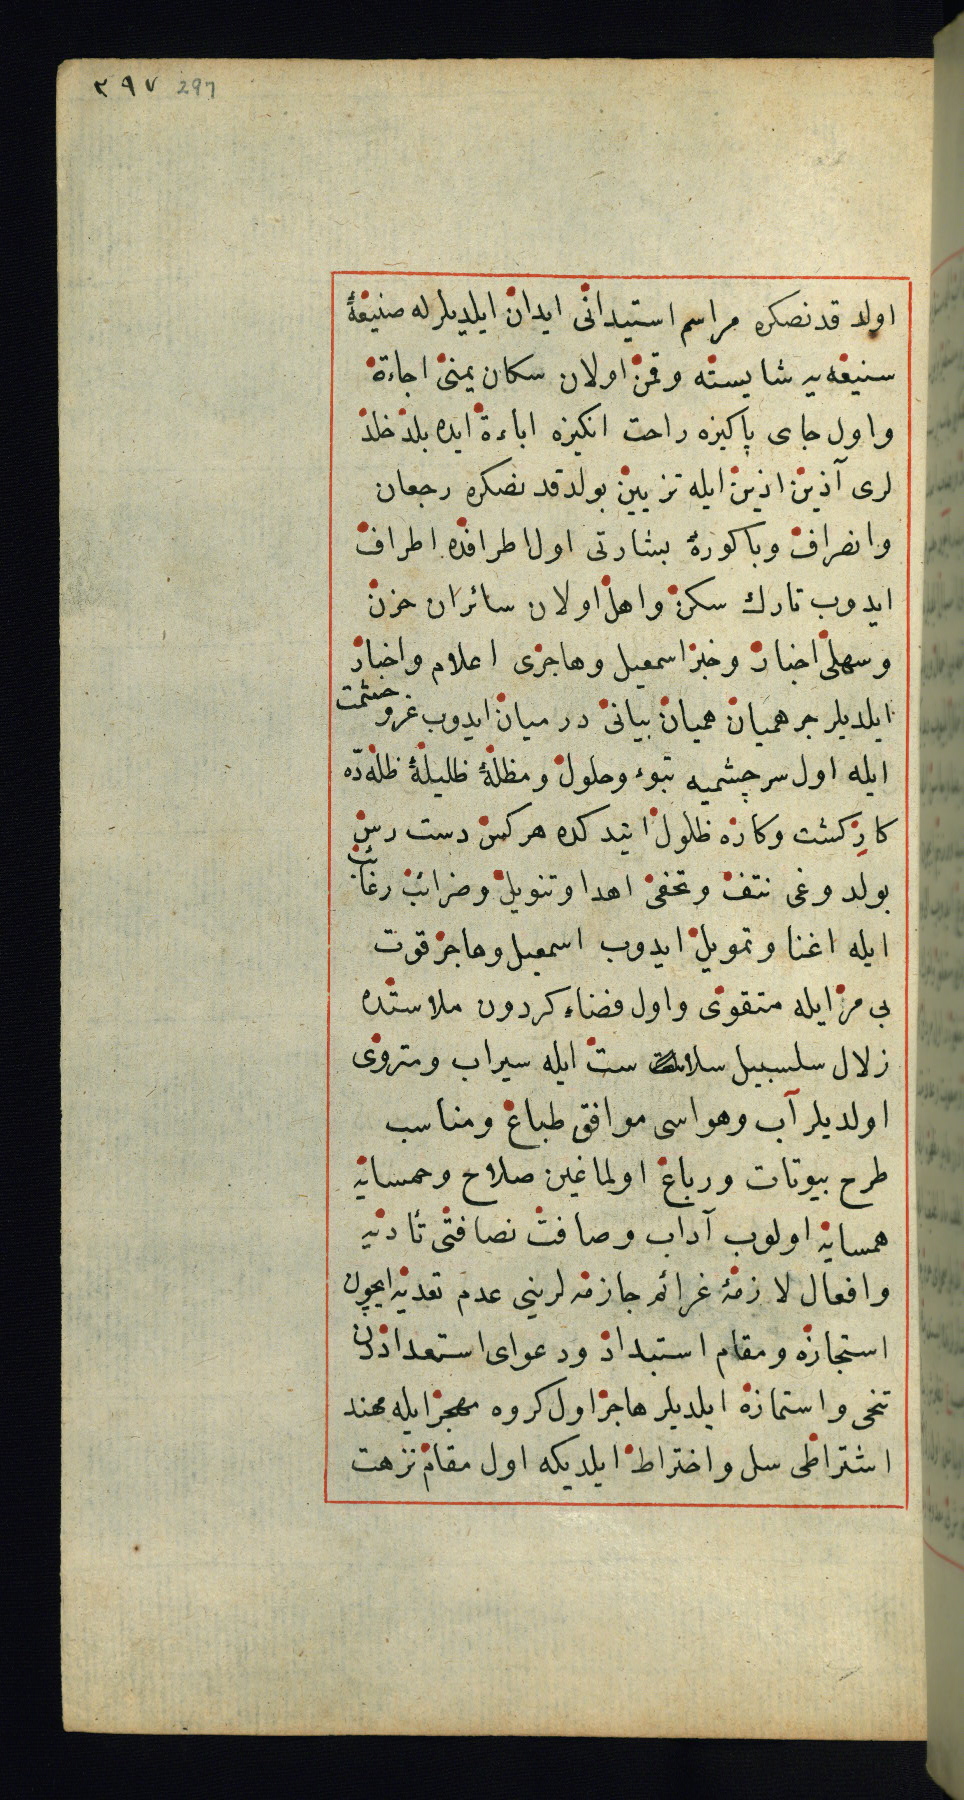 ٢٩٧ 297
اولدقدنصكره مراسم استيدانى ايدان ايلديلرله صنيعۀ
سنيعه يه شايسته وقمن اولان سكان يمنى اجاءة
واول جاى پاكيزه راحت انكيزه اباءة ايده بلد خلد
لرى آذين اذين ايله تزيين بولدقدنصكره رجعان
وانصراف وباكورۀ بشارتى اول اطرافده اطراف
ايدوب تارك سكن واهل اولان سائران حزن
وسهلى اخبار وخبر اسمعيل وهاجرى اعلام واخبار
ايلديلر جرهميان هميان بيانى درميان ايدوب غزو حشمت
ايله اول سرچشميه تبوء وحلول ومظلۀ ظليلۀ ظله ده
كار كشت وكاره ظلول ايتدكده هركس دست رس
بولدوغى نتف وتحفى اهدا وتنويل وضرائب رغائب
ايله اغنا وتمويل ايدوب اسمعيل وهاجر قوت
بى مر ايله متقوى واول فضاء كردون ملاستده
زلال سلسبيل سلاست ايله سيراب ومتروى
اولديلر آب وهواسى موافق طباع ومناسب
طرح بيوتات ورباع اولماغين صلاح وحمسانه
همسايه اولوب آداب وصافت نصافتى تأديه
وافعال لازمۀ غرائم جازمه لرينى عدم تعديه ايچون
استجازه ومقام استبداد ودعواى استعدادن
تنحى واستمازه ايلديلر هاجر اول كروه مهجر ايله مهند
اشتراطى سل واختراط ايلديكه اول مقام نزهت